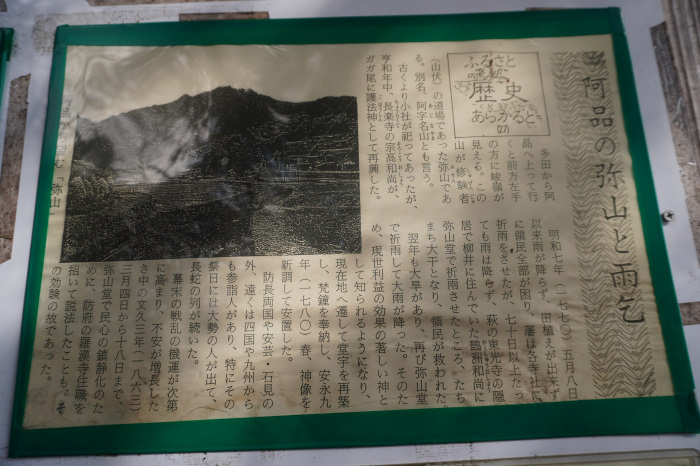 阿品の弥山と雨乞
ふるさと
の
歴史
あらかると
(27)
多田から阿
品へ上って行
くと前方左手
の方に峻嶺が
見える。この
山が修験者
(山伏)の道場であった弥山であ
る。別名、阿字名山とも言う。
古くより小社が祀ってあったが、
享和年中、長楽寺の宗高和尚が、
ガガ尾に護法神として再興した。
明和七年(一七七〇)五月八日
以来雨が降らず、田植えが出来ず
に領民全部が困り、藩は各寺社に
祈雨をさせたが、七十日以上たっ
ても雨は降らず、萩の東光寺の隠
居で柳井に住んでいた臨洲和尚に
弥山堂で祈雨させたところ、たち
まち大干となり、領民が救われた。
翌年も大旱があり、再び弥山堂
で祈雨して大雨が降った。そのた
め、現世利益の効果の著しい神と
して知られるようになり、
現在地へ遷して堂宇を再築
し、梵鐘を奉納し、安永九
年(一七八〇)春、神像を
新調して安置した。
防長両国や安芸・石見の
外、遠くは四国や九州から
も参詣人があり、特にその
祭日には大勢の人が出て、
長蛇の列が続いた。
幕末の戦乱の機運が次第
に高まり、不安が増長した
さ中の文久三年(一八六三)
三月四日から十八日まで、
弥山堂で民心の鎮静化のた
めに、防府の羅漢寺住職を
招いて説法したことも、そ
の効験の故であった。
む「弥山」